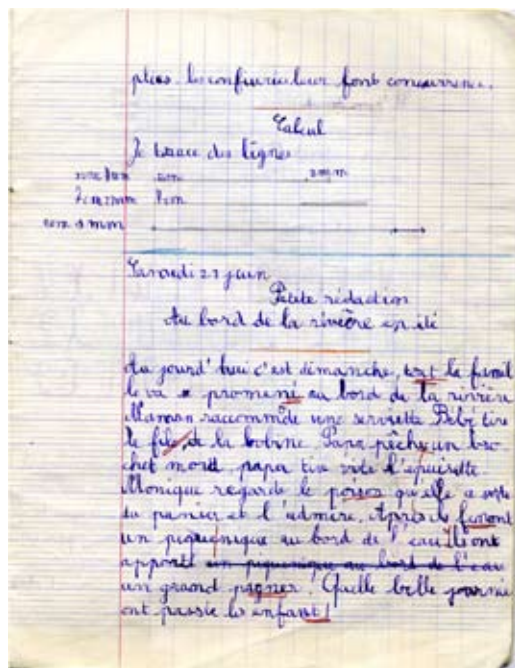 plus. la confiurie leur font concurrence.
Calcul
Je trace des lignes
2cm 2mm
7cm
Samedi 21 juin
Petite rédaction
Au bord de la rivière en été
Au jourd'hui c'est dimanche, tout la famil
le va promené au bord de la rivière
Maman raccommode une serviette Bébé tire
le file de la bobine. Papa pêche un bro
chet mord papa tire vite l'épuisette
Monique regarde le poison qu'elle a
du panier et l'admire. Après ils furont
un piquenique au bord de l'eau Ils ont
apporté un piquenique au bord de l'eau
un grand pagner! Quelle belle journée
ont passée les enfant!